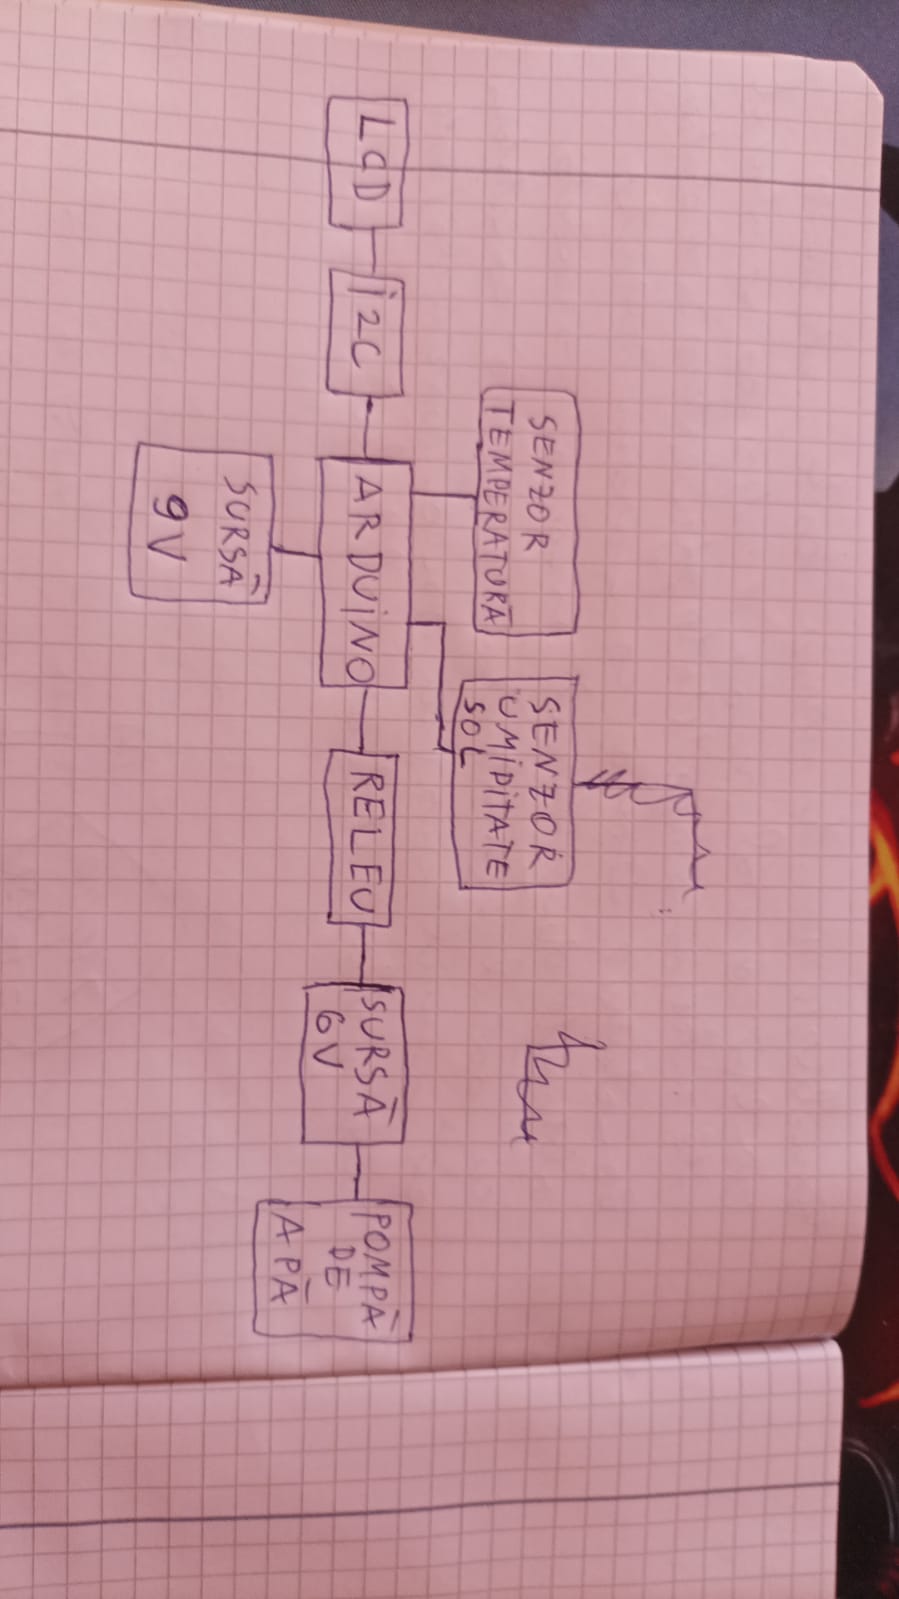 SENZOR
TEMPERATURĂ
SENZOR
UMIDITATE
SOL
LCD
I2C
ARDUINO
RELEU
SURSĂ
6V
POMPĂ
DE
APĂ
SURSĂ
9V